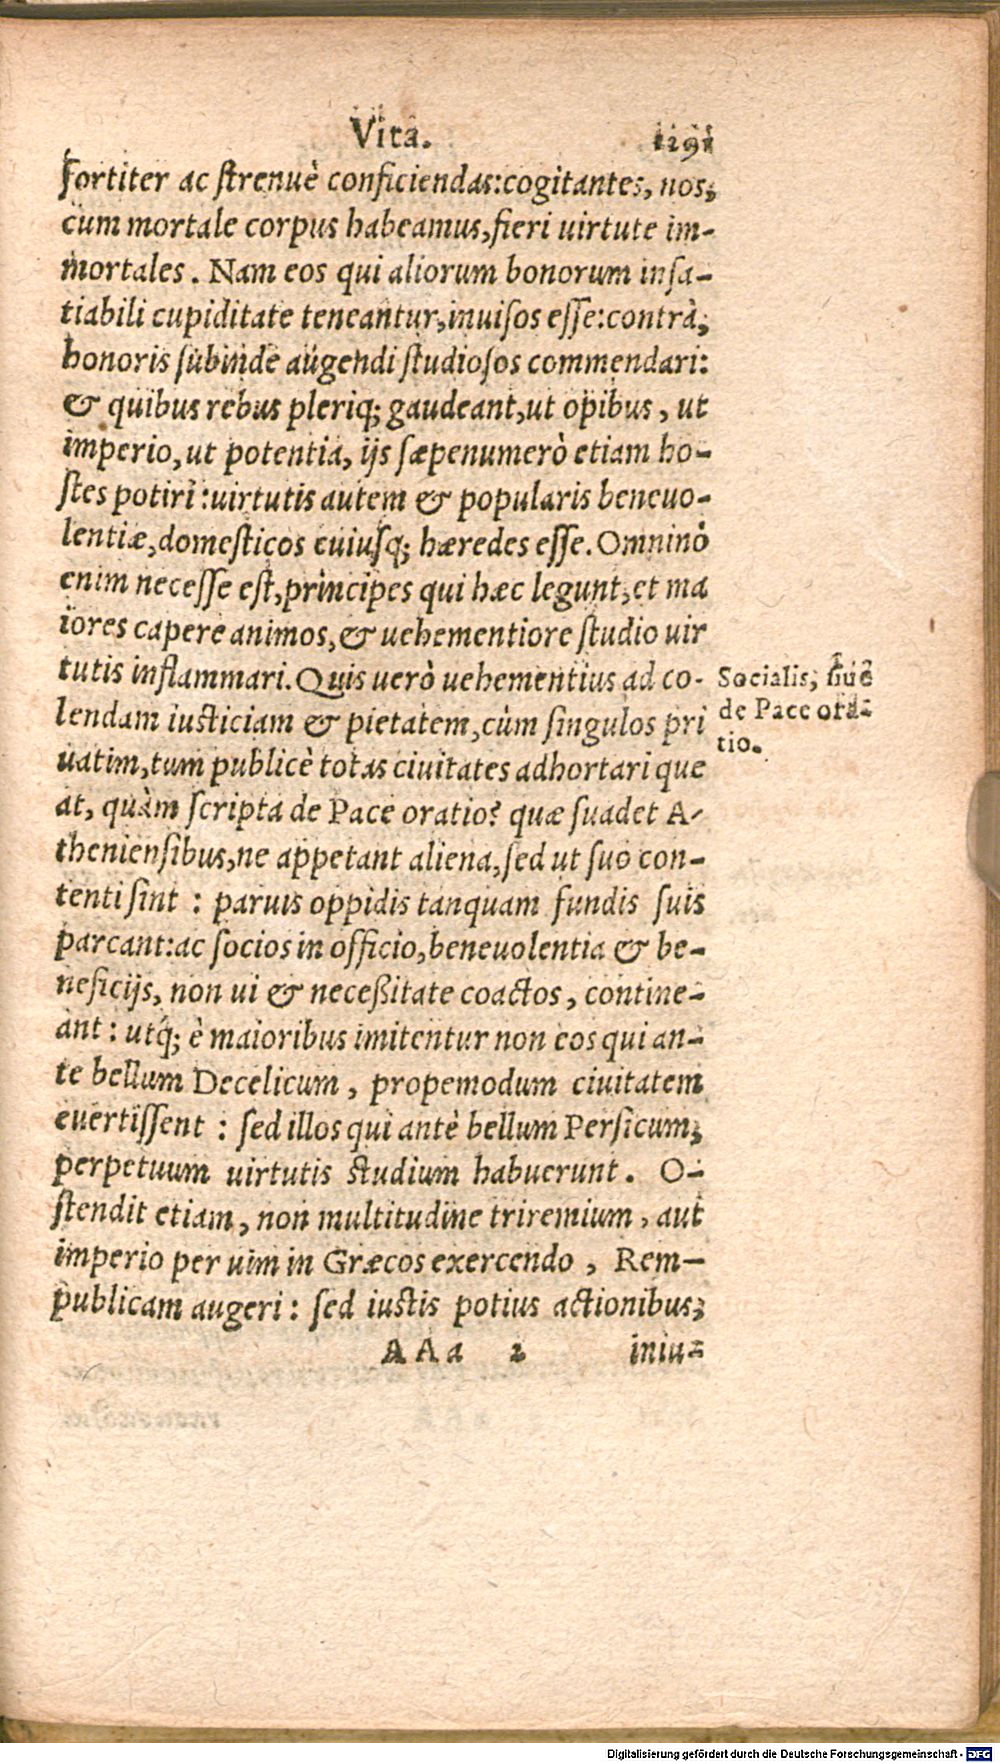 Vita. 1291
fortiter ac strenuè conficiendas:cogitantes, nos,
cum mortale corpus habeamus,fieri uirtute im-
mortales. Nam eos qui aliorum bonorum insa-
tiabili cupiditate teneantur,inuisos esse:contrà,
honoris subinde augendi studiosos commendari:
& quibus rebus pleriq; gaudeant,ut opibus, ut
imperio,ut potentia, ijs sæpenumerò etiam ho-
stes potiri:uirtutis autem & popularis beneuo-
lentiæ,domesticos cuiusq; hæredes esse. Omninò
enim necesse est,principes qui hæc legunt,et ma
iores capere animos,& uehementiore studio uir
tutis inflammari. Quis uerò uehementius ad co-
lendam iusticiam & pietatem,cùm singulos pri
uatim,tum publicè totas ciuitates adhortari que
at, quàm scripta de Pace oratio? quæ suadet A-
theniensibus,ne appetant aliena,sed ut suo con-
tenti sint : paruis oppidis tanquam fundis suis
parcant:ac socios in officio,beneuolentia & be-
neficijs, non ui & necessitate coactos, contine-
ant: utq́; è maioribus imitentur non eos qui an-
te bellum Decelicum, propemodum ciuitatem
euertissent : sed illos qui antè bellum Persicum,
perpetuum uirtutis studium habuerunt. O-
stendit etiam, non multitudine triremium, aut
imperio per uim in Græcos exercendo, Rem-
publicam augeri: sed iustis potius actionibus,
AAa 2 iniu-
Socialis, siue
de Pace ora-
tio.
Digitalisierung gefördert durch die Deutsche Forschungsgemeinschaft - DFG